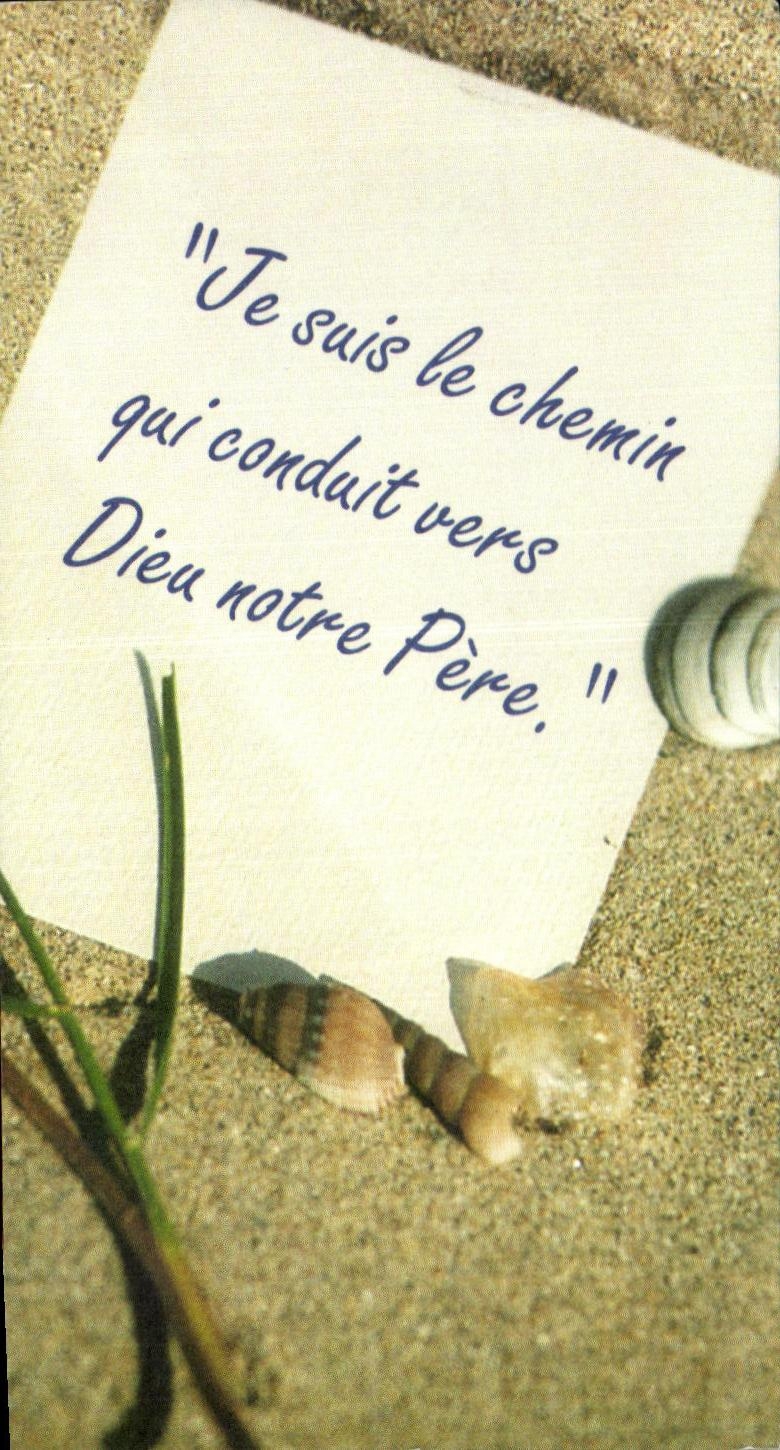 "Je suis le chemin
qui conduit vers
Dieu notre Père."